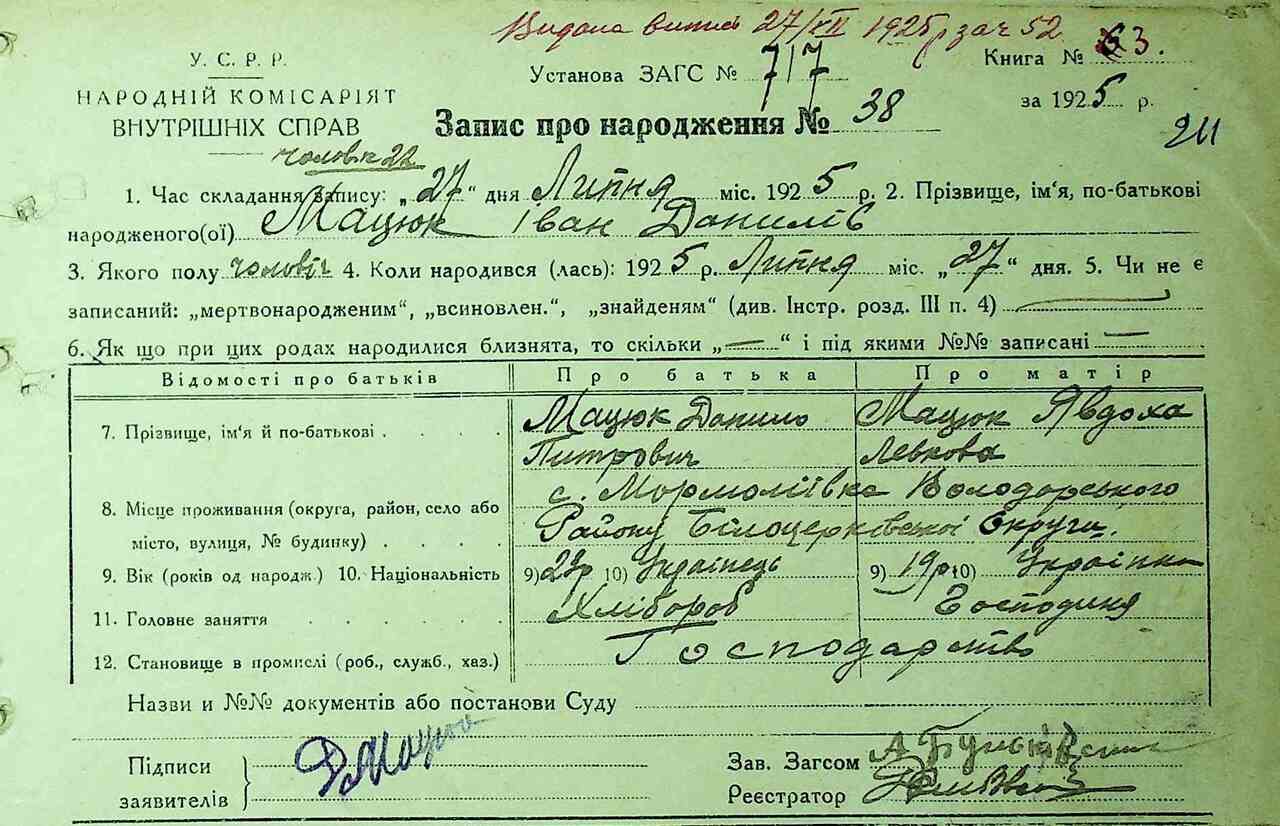 Видана витяг 27/VII 1925 р за ч 52
У. С. Р. Р.
НАРОДНІЙ КОМІСАРІЯТ
ВНУТРІШНІХ СПРАВ
Установа ЗАГС № 717
Книга № 3.
за 1925 р.
Запис про народження № 38
чолов.
1. Час складання запису: „27“ дня Липня міс. 1925 р. 2. Прізвище, ім'я, по-батькові
народженого(ої) Мацюк Іван Данилів
3. Якого полу чоловіч 4. Коли народився (лась): 1925 р. Липня міс. „27“ дня. 5. Чи не є
записаний: „мертвонародженим“, „всиновлен.“, „знайденям“ (див. Інстр. розд. III п. 4)
6. Як що при цих родах народилися близнята, то скільки „—“ і під якими №№ записані —
Відомості про батьків Про батька Про матір
7. Прізвище, ім'я й по-батькові . . . . Мацюк Данило Мацюк Явдоха
Питрович Левкова
8. Місце проживання (округа, район, село або с. Мормоліївка Володарського
місто, вулиця, № будинку) . . . . Району Білоцерківської Округи.
9. Вік (років од народж.) 10. Національність 9) 10) Українець 9) 19р 10) Українка
11. Головне заняття . . . . . Хлібороб Господиня
12. Становище в промислі (роб., служб., хаз.) Господарство
Назви и №№ документів або постанови Суду
Підписи
заявителів
Д Мацюк
Зав. Загсом
Реєстратор